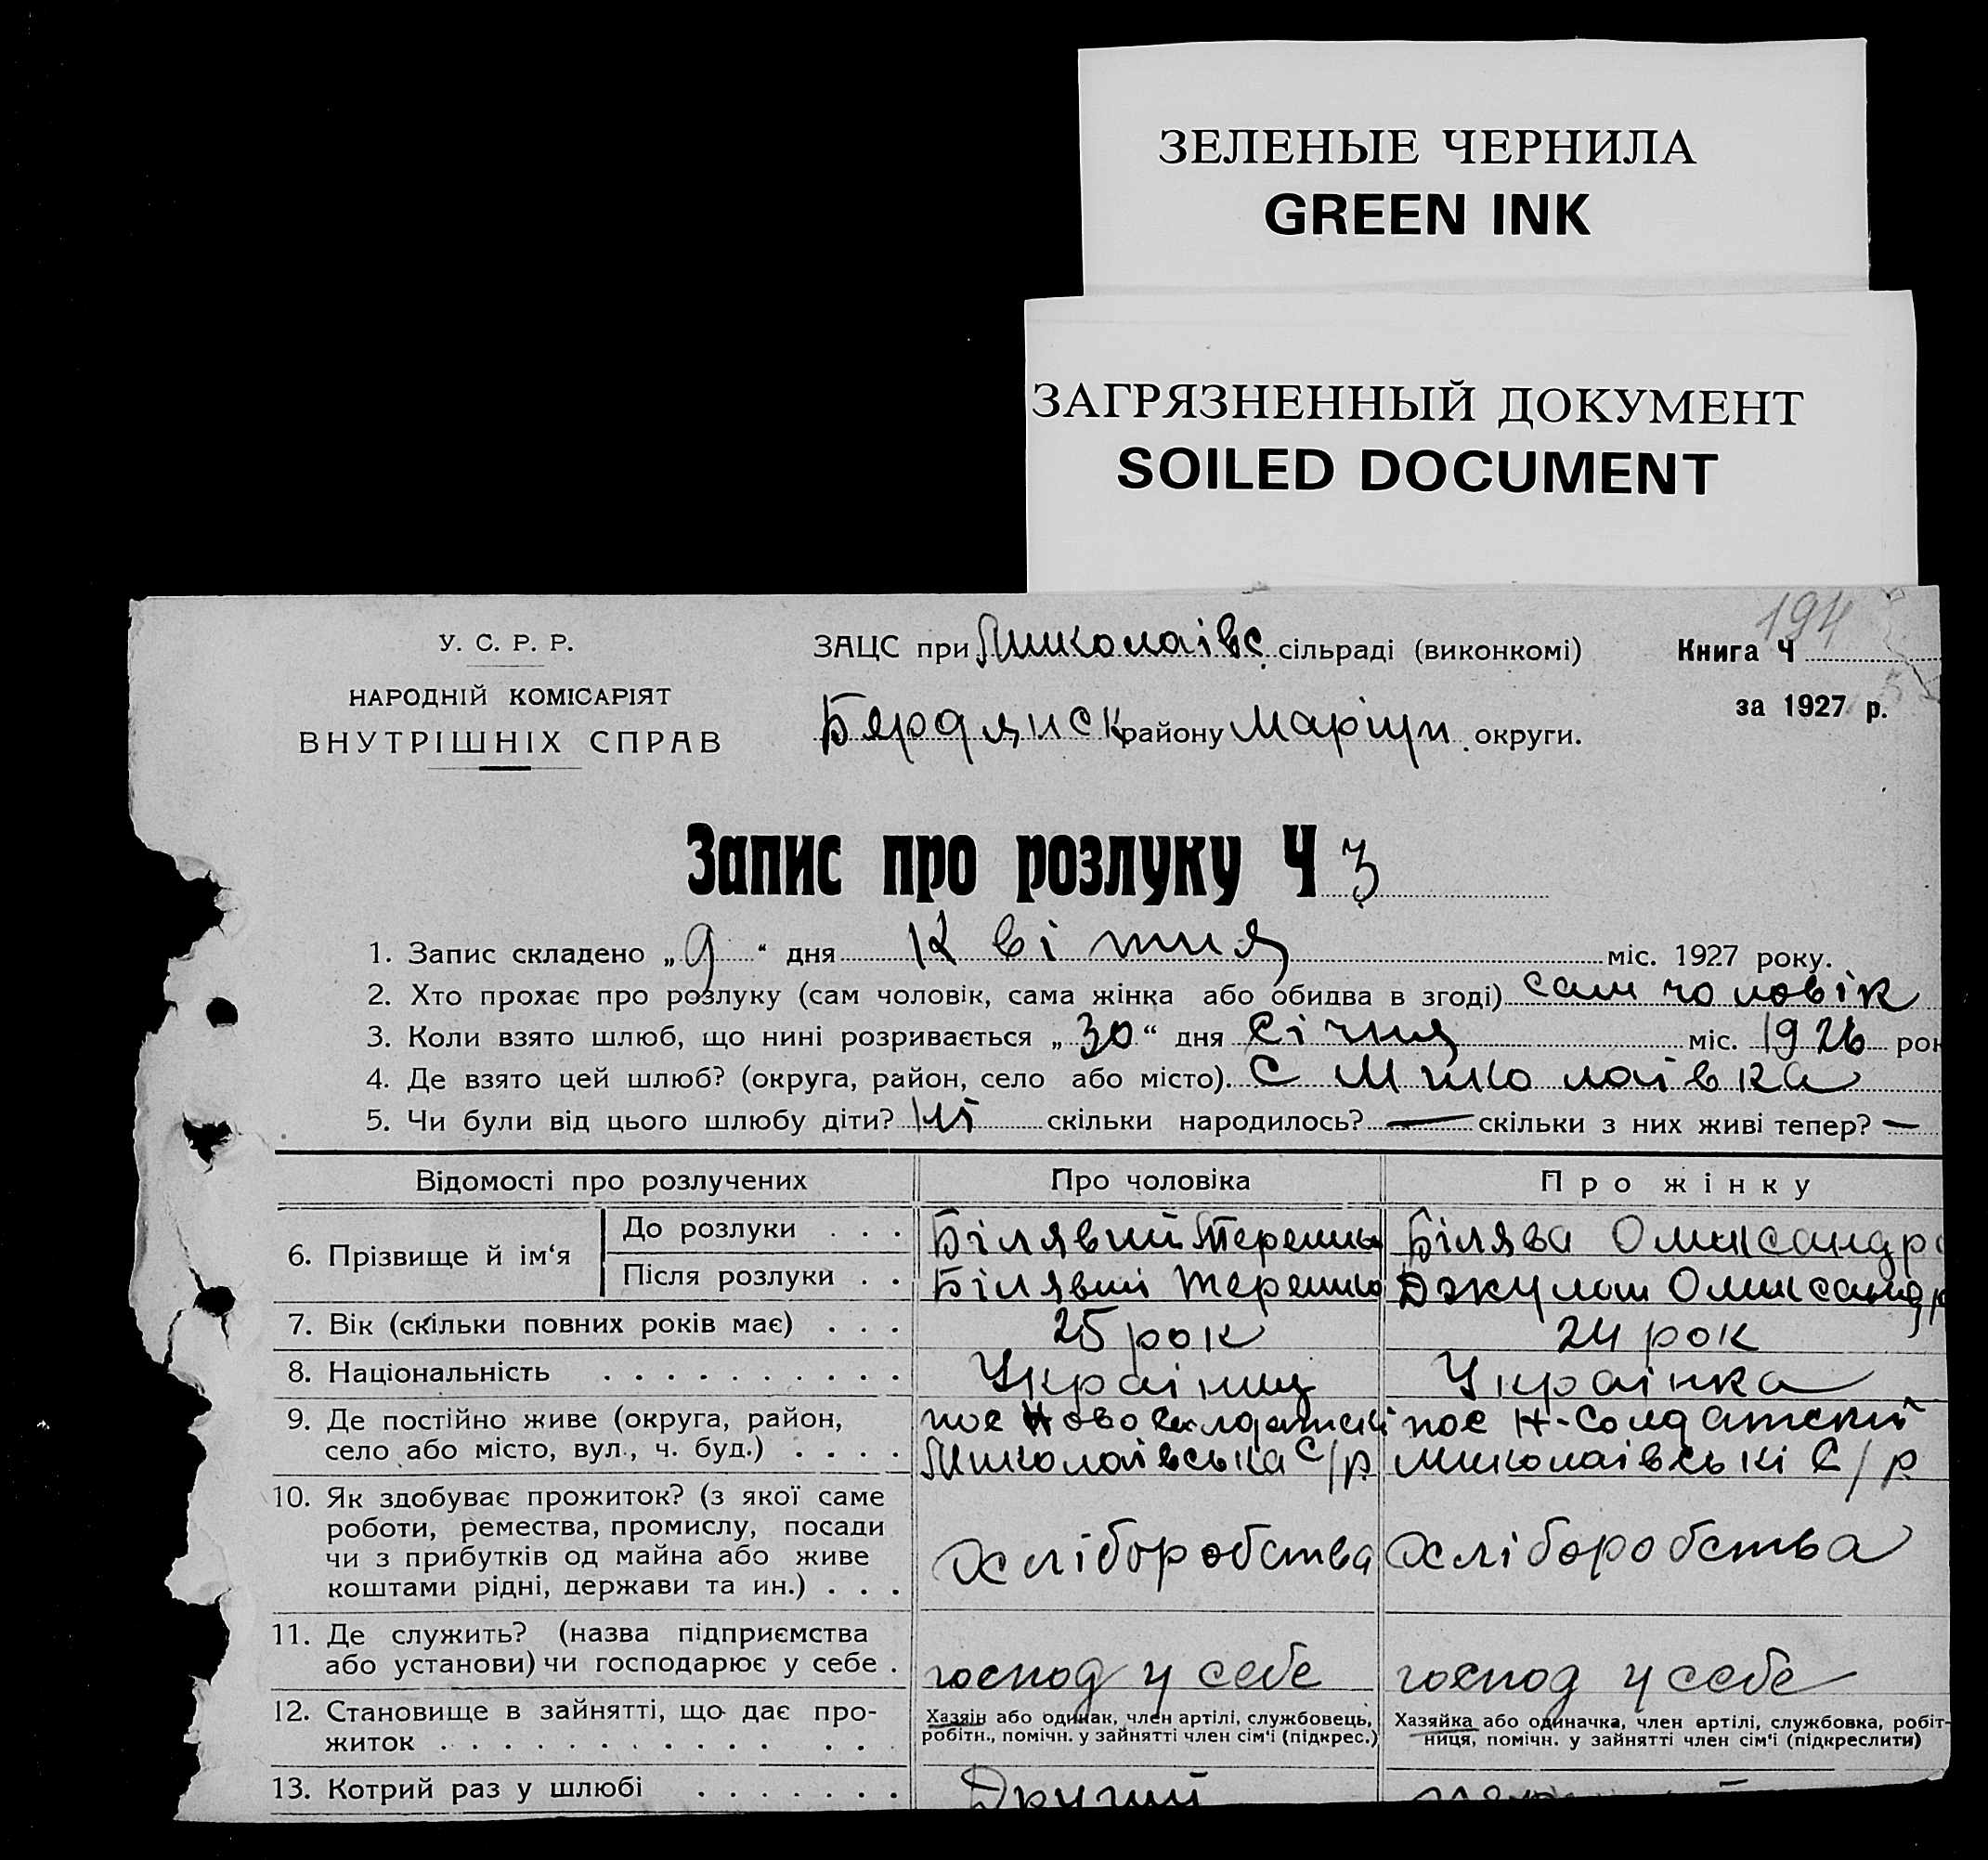 ЗЕЛЕНЫЕ ЧЕРНИЛА
GREEN INK
ЗАГРЯЗНЕННЫЙ ДОКУМЕНТ
SOILED DOCUMENT
194
У. С. Р. Р.
НАРОДНІЙ КОМІСАРІЯТ
ВНУТРІШНІХ СПРАВ
ЗАЦС при Миколаівс. сільраді (виконкомі)
Бердянск району Маріуп. округи.
Книга Ч
за 1927 р.
Запис про розлуку Ч 3
1. Запис складено „9“ дня Квітня міс. 1927 року.
2. Хто прохає про розлуку (сам чоловік, сама жінка або обидва в згоді) сам чоловік
3. Коли взято шлюб, що нині розривається „30“ дня Січня міс. 1926 рок
4. Де взято цей шлюб? (округа, район, село або місто). С Миколаівка
5. Чи були від цього шлюбу діти? ні скільки народилось? — скільки з них живі тепер? —
Відомості про розлучених Про чоловіка Про жінку
6. Прізвище й ім‘я
До розлуки . . . Білявий Терешко Білява Олександра
Після розлуки . . Білявий Терешко Олександр
7. Вік (скільки повних років має) . . . 25 рок 24 рок
8. Національність . . . . . . . . . . Україниц Українка
9. Де постійно живе (округа, район, пос Ново Солдатскі пос Н-Солдатский
село або місто, вул., ч. буд.) . . . . Миколаівська С/р Миколаівські С/р
10. Як здобуває прожиток? (з якої саме
роботи, ремества, промислу, посади
чи з прибутків од майна або живе хліборобства хліборобства
коштами рідні, держави та ин.) . . .
11. Де служить? (назва підприємства
або установи) чи господарює у себе . господ у себе господ у себе
12. Становище в зайнятті, що дає про-
житок . . . . . . . . . . . . .
Хазяїн або одинак, член артілі, службовець,
робітн., помічн. у зайнятті член сім'ї (підкрес.)
Хазяйка або одиначка, член артілі, службовка, робіт-
ниця, помічн. у зайнятті член сім'ї (підкреслити)
13. Котрий раз у шлюбі . . . . . . . Другий